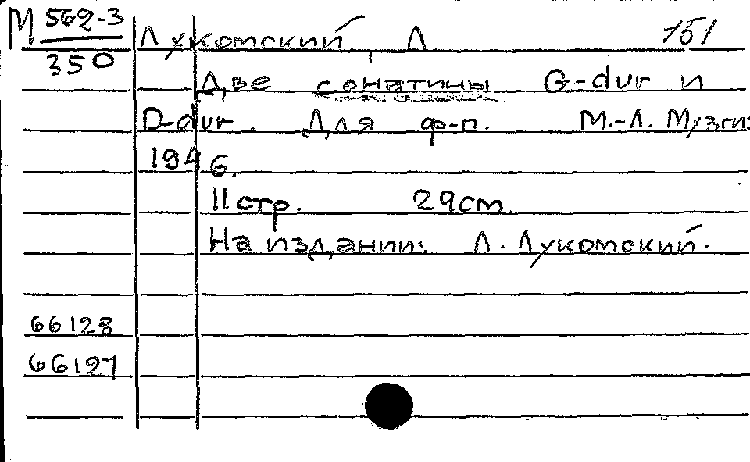 М 562-3 Лукомский, Л 151
350
Две сонатины G-dur и
D-dur. Для ф-п. М.-Л. Музгиз
1946.
11 стр. 29 cm.
На издании: Л. Лукомский.
66128
66127